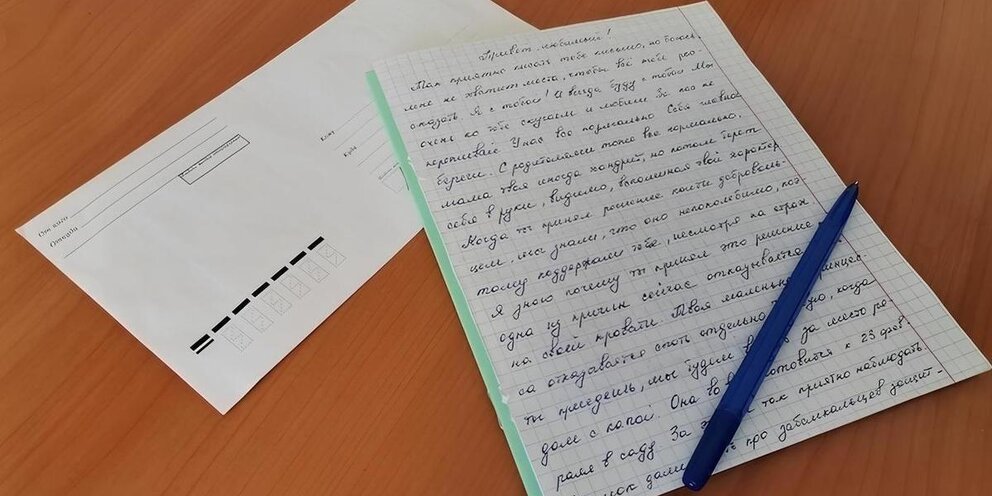 От кого
Откуда
Кому
Куда
Привет, любимый!
Так приятно писать тебе письмо, но боюсь,
мне не хватит места, чтобы всё тебе рас-
сказать. Я с тобой! И всегда буду с тобой! Мы
очень по тебе скучаем и любим. За нас не
переживай. У нас все нормально. Себя главное
береги. С родителями тоже все нормально,
мама твоя иногда хандрит, но потом берет
себя в руки, видимо, вспоминая твой характер.
Когда ты принял решение пойти доброволь-
цем, мы знали, что оно непоколебимо, поэ-
тому поддержали тебе, несмотря на страх.
Я знаю почему ты принял это решение
одна из причин сейчас отказывается
на своей кровати. Твоя маленькая принцес-
са отказывается спать отдельно, когда
ты приедешь, мы будем за место ре-
доме с папой. Она готовится к 23 фев
раля в саду. За так приятно наблюдать
про забайкальцев защит-